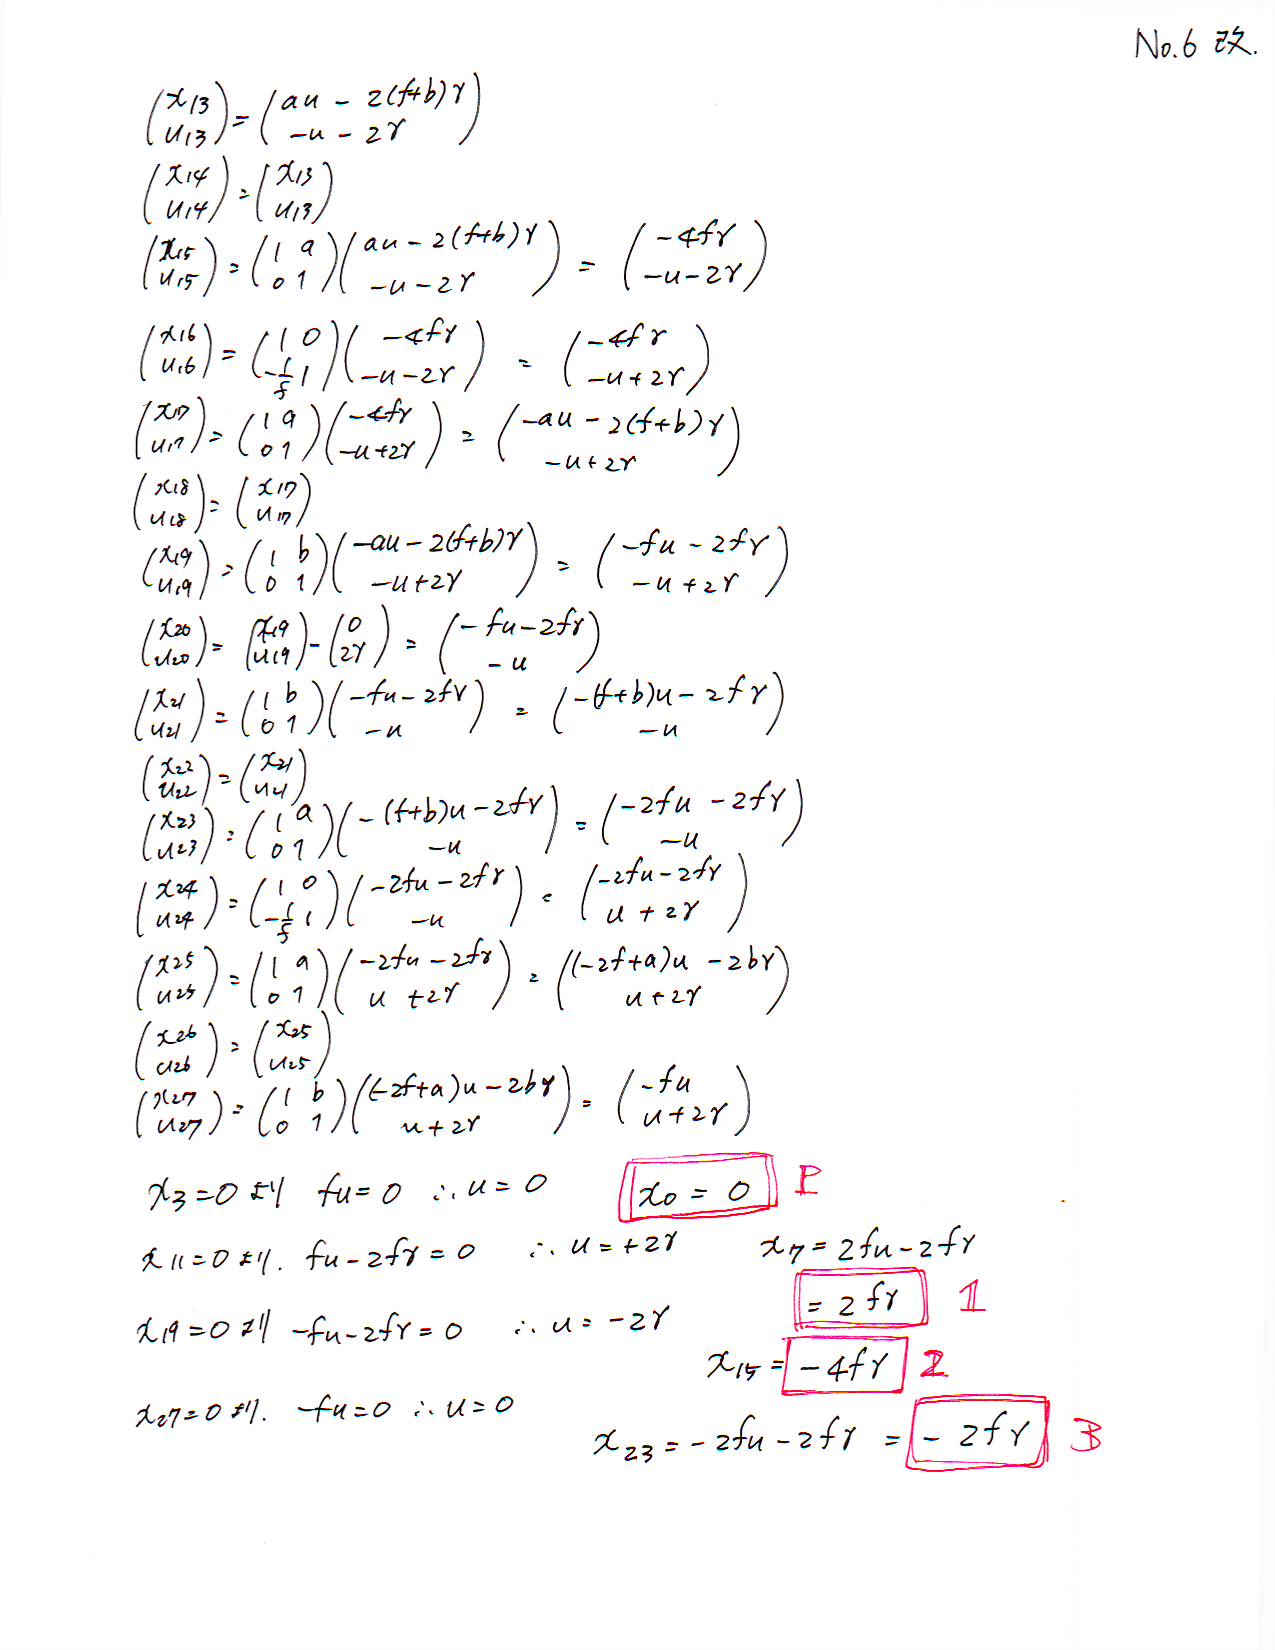 No.6 改.
(x13 u13) = (au - 2(f+b)γ -u - 2γ)
(x14 u14) = (x13 u13)
(x15 u15) = (1 a 0 1)(au - 2(f+b)γ -u - 2γ) = (-4fγ -u-2γ)
(x16 u16) = (1 0 -1/f 1)(-4fγ -u-2γ) = (-4fγ -u+2γ)
(x17 u17) = (1 a 0 1)(-4fγ -u+2γ) = (-au - 2(f+b)γ -u+2γ)
(x18 u18) = (x17 u17)
(x19 u19) = (1 b 0 1)(-au-2(f+b)γ -u+2γ) = (-fu - 2fγ -u+2γ)
(x20 u20) = (x19 u19) - (0 2γ) = (-fu-2fγ -u)
(x21 u21) = (1 b 0 1)(-fu-2fγ -u) = (-(f+b)u - 2fγ -u)
(x22 u22) = (x21 u21)
(x23 u23) = (1 a 0 1)(-(f+b)u-2fγ -u) = (-2fu - 2fγ -u)
(x24 u24) = (1 0 -1/f 1)(-2fu-2fγ -u) = (-2fu-2fγ u+2γ)
(x25 u25) = (1 a 0 1)(-2fu-2fγ u+2γ) = ((-2f+a)u - 2bγ u+2γ)
(x26 u26) = (x25 u25)
(x27 u27) = (1 b 0 1)((-2f+a)u-2bγ u+2γ) = (-fu u+2γ)
x3=0 より fu=0 ∴u=0 x0 = 0 P
x11=0 より. fu-2fγ=0 ∴u=+2γ x7=2fu-2fγ
= 2fγ 1
x19=0 より -fu-2fγ=0 ∴u=-2γ
x15 = -4fγ 2
x27=0 より. -fu=0 ∴u=0
x23=-2fu-2fγ = -2fγ 3